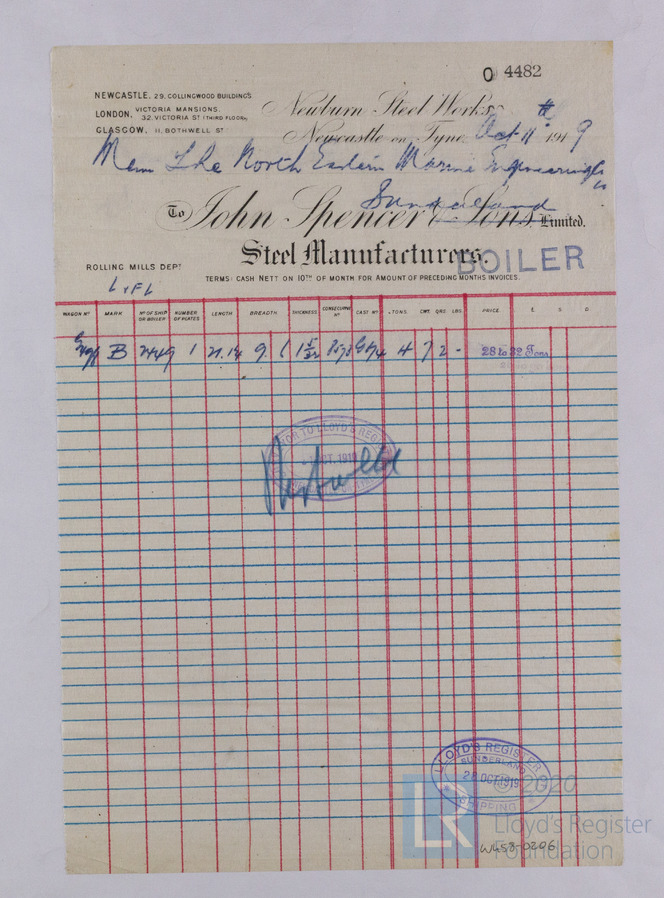 O 4482
NEWCASTLE, 29, COLLINGWOOD BUILDINGS
LONDON, VICTORIA MANSIONS.
32, VICTORIA ST (THIRD FLOOR),
GLASCOW, 11, BOTHWELL ST
Newburn Steel Works
Newcastle-on-Tyne, Oct 11th 1919
The North Eastern Marine Engineering Co
Sunderland
To John Spencer & Sons, Limited.
Steel Manufacturers.
BOILER
ROLLING MILLS DEPT
TERMS: CASH NETT ON 10TH OF MONTH FOR AMOUNT OF PRECEDING MONTHS INVOICES.
WAGON No MARK No OF SHIP OR BOILER NUMBER OF PLATES LENGTH BREADTH THICKNESS CONSECUTIVE No CAST No TONS CWT. QRS LBS PRICE. £ S D
B 2449 1 21.14 9. 4 7 2 - 28 to 32 Tons
SURVEYOR TO LLOYD'S REGISTER
OCT. 1919
LLOYD'S REGISTER
SUNDERLAND
28 OCT. 1919
SHIPPING
LR
© 2020
Lloyd's Register
Foundation
W458-0206